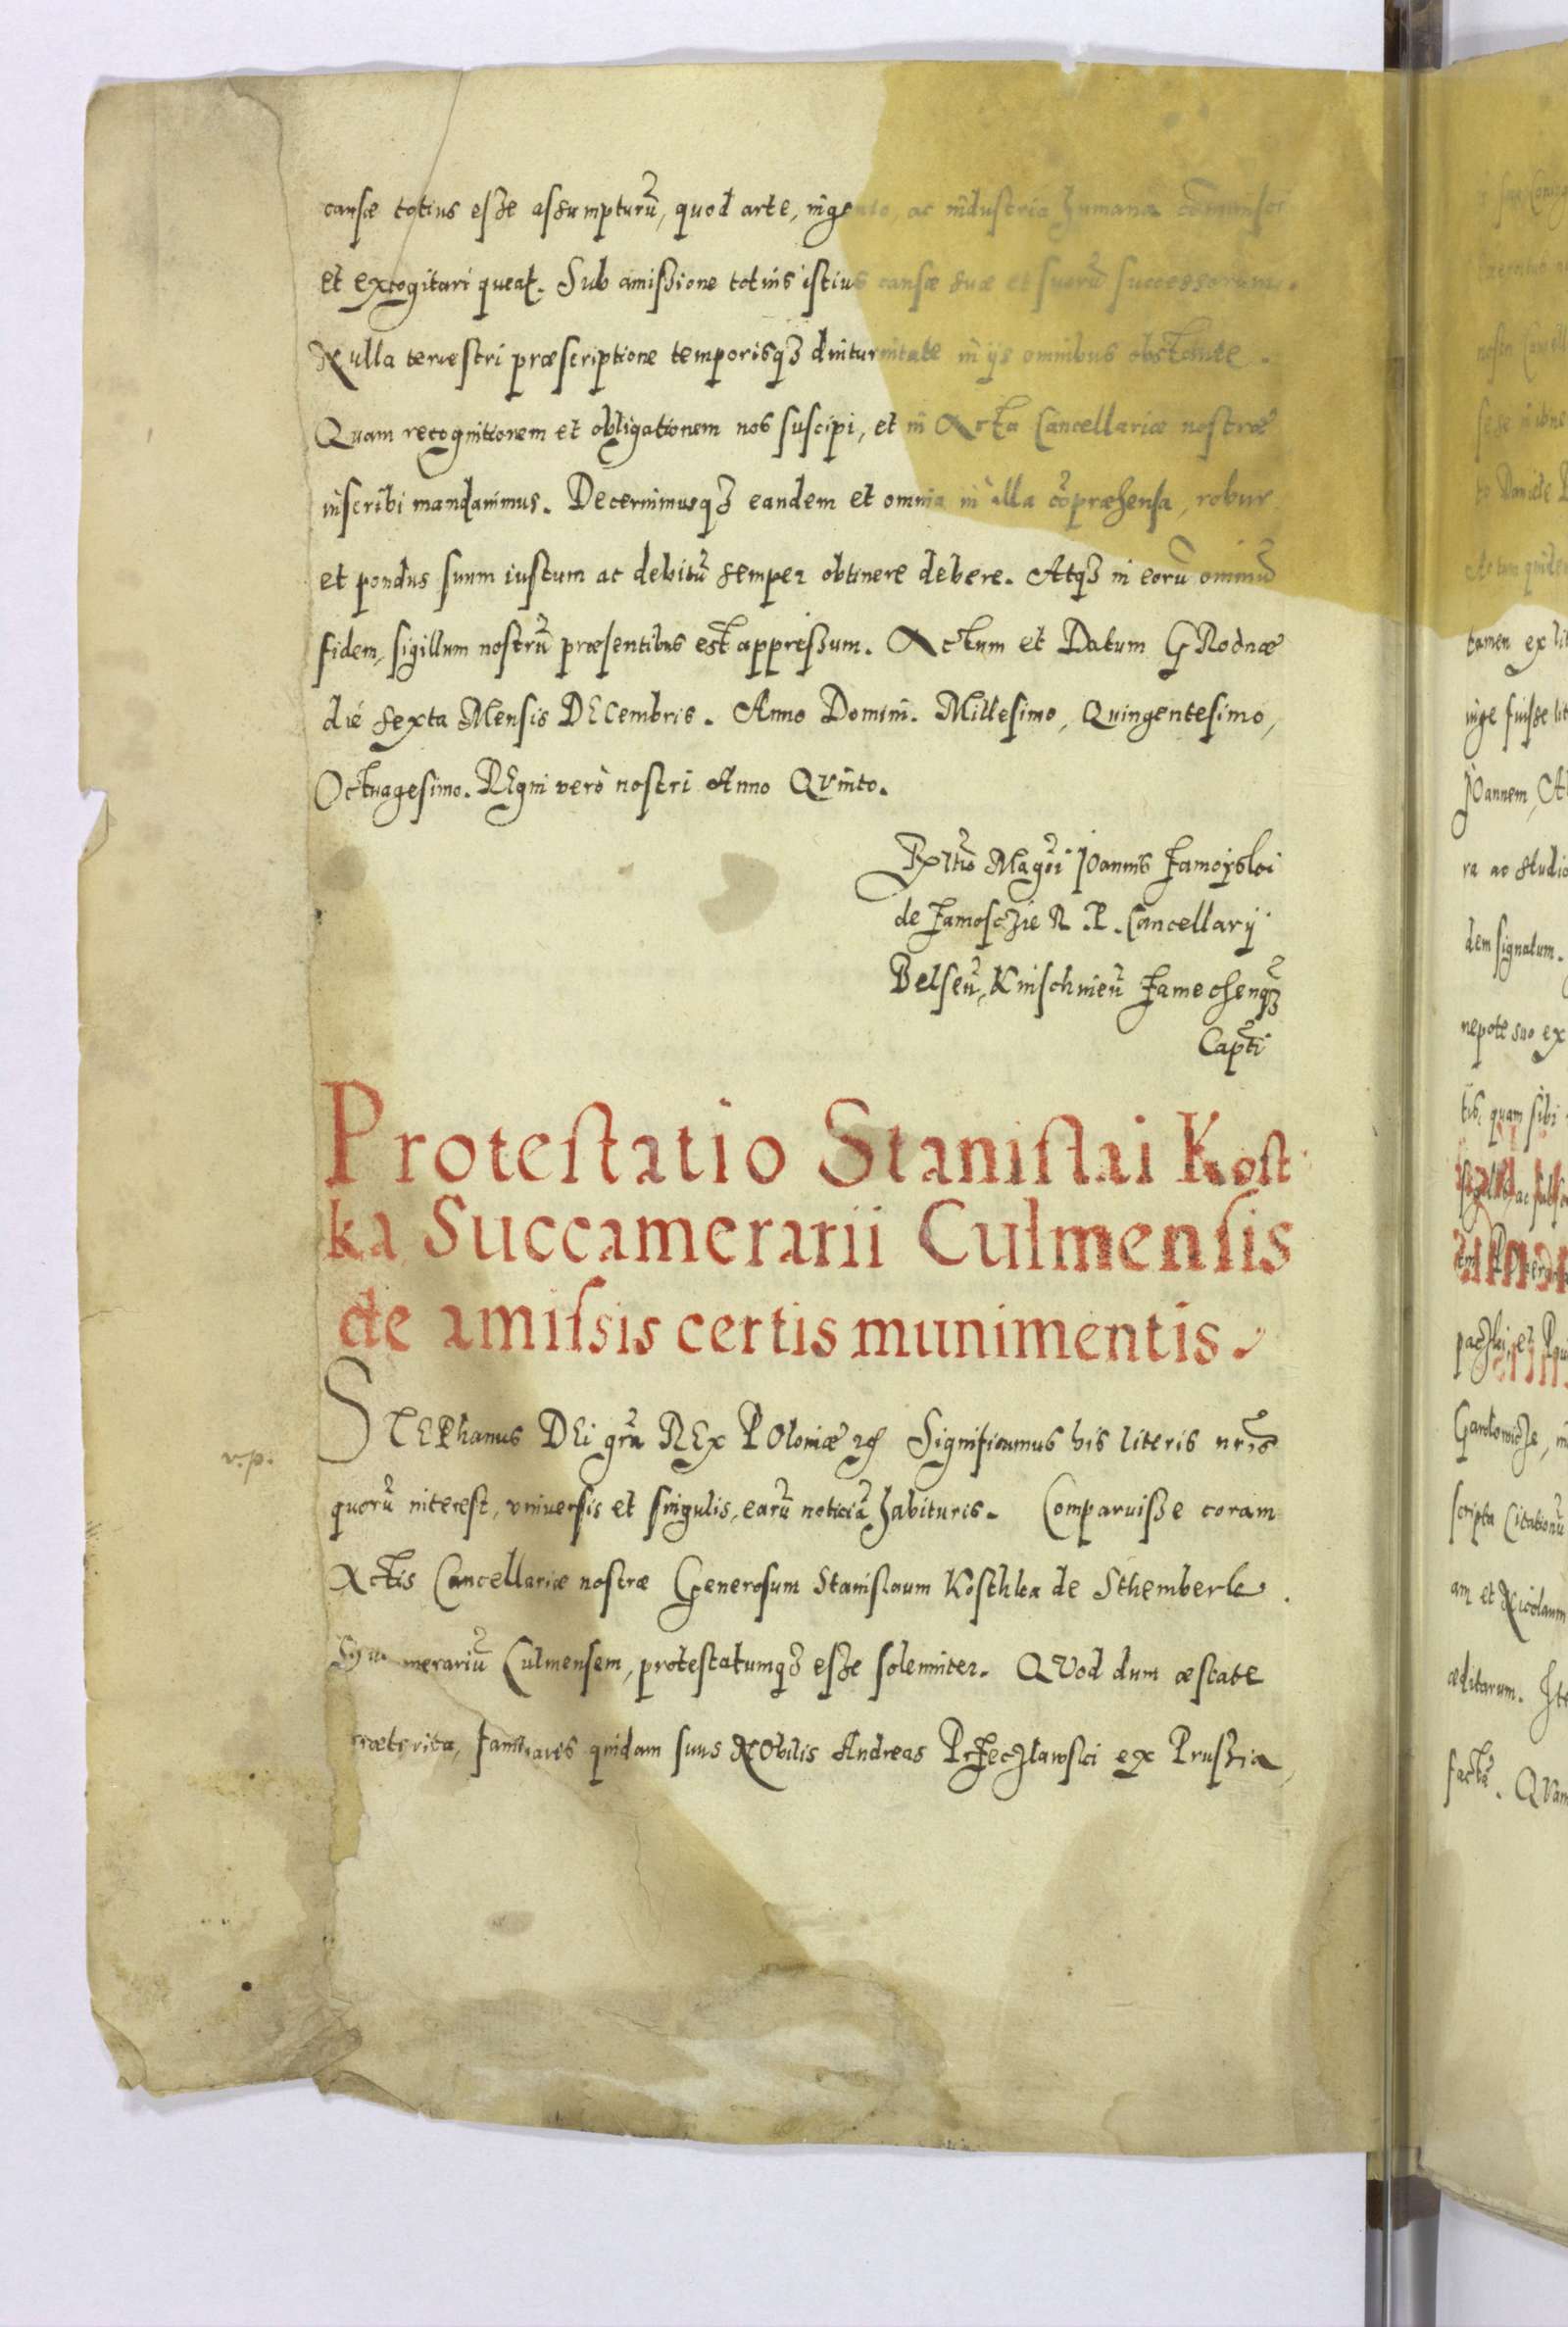 causæ totius eſse aſsumpturũ, quod arte, ingenio, ac industria humana cõminisci
et excogitari queat. Sub amiſsione totius istius causæ suæ et suorũ successorum.
Nulla terrestri præscriptione temporisqꝫ diuturnitate in ijs omnibus obstante.
Quam recognitionem et obligationem nos suscipi, et in Acta Cancellariæ nostræ
inscribi mandauimus. Decernimusqꝫ eandem et omnia in illa cõpræhensa, robur
et pondus suum iustum ac debitũ semper obtinere debere. Atqꝫ in eorũ omniũ
fidem, sigillum nostrũ præsentibus est appreſsum. Actum et Datum GRodnæ
die sexta Mensis DECembris. Anno Domini. Millesimo, Quingentesimo,
Octuagesimo. REgni verò nostri Anno QVinto.
Magci IOannis Zamoyski
de Zamosczie R. P. Cancellarij
Belseñ, Knischineñ Zamechenqꝫ
Capti
Protestatio Stanislai Kost
ka Succamerarii Culmensis
de amiſsis certis munimentis.
v.p.
STEPhanus DEi gra REx POloniæ ꝛc̃ Significamus his literis nris
quorũ interest, vniuersis et singulis, earũ noticiã habituris. Comparuiſse coram
Actis Cancellariæ nostræ Generosum Stanislaum Kosthka de Sthemberk
merariũ Culmensem, protestatumqꝫ eſse solenniter. QVod dum æstate
præterita, familiaris quidam suus NObilis Andreas Przeczlawski ex Pruſsia,
tamen ex lit
IOannem, A
ra ac studio
dem signatum.
nepote suo ex
tis, quam sibi
am et Nicolaum
æditarum. Ite
factã. QVam